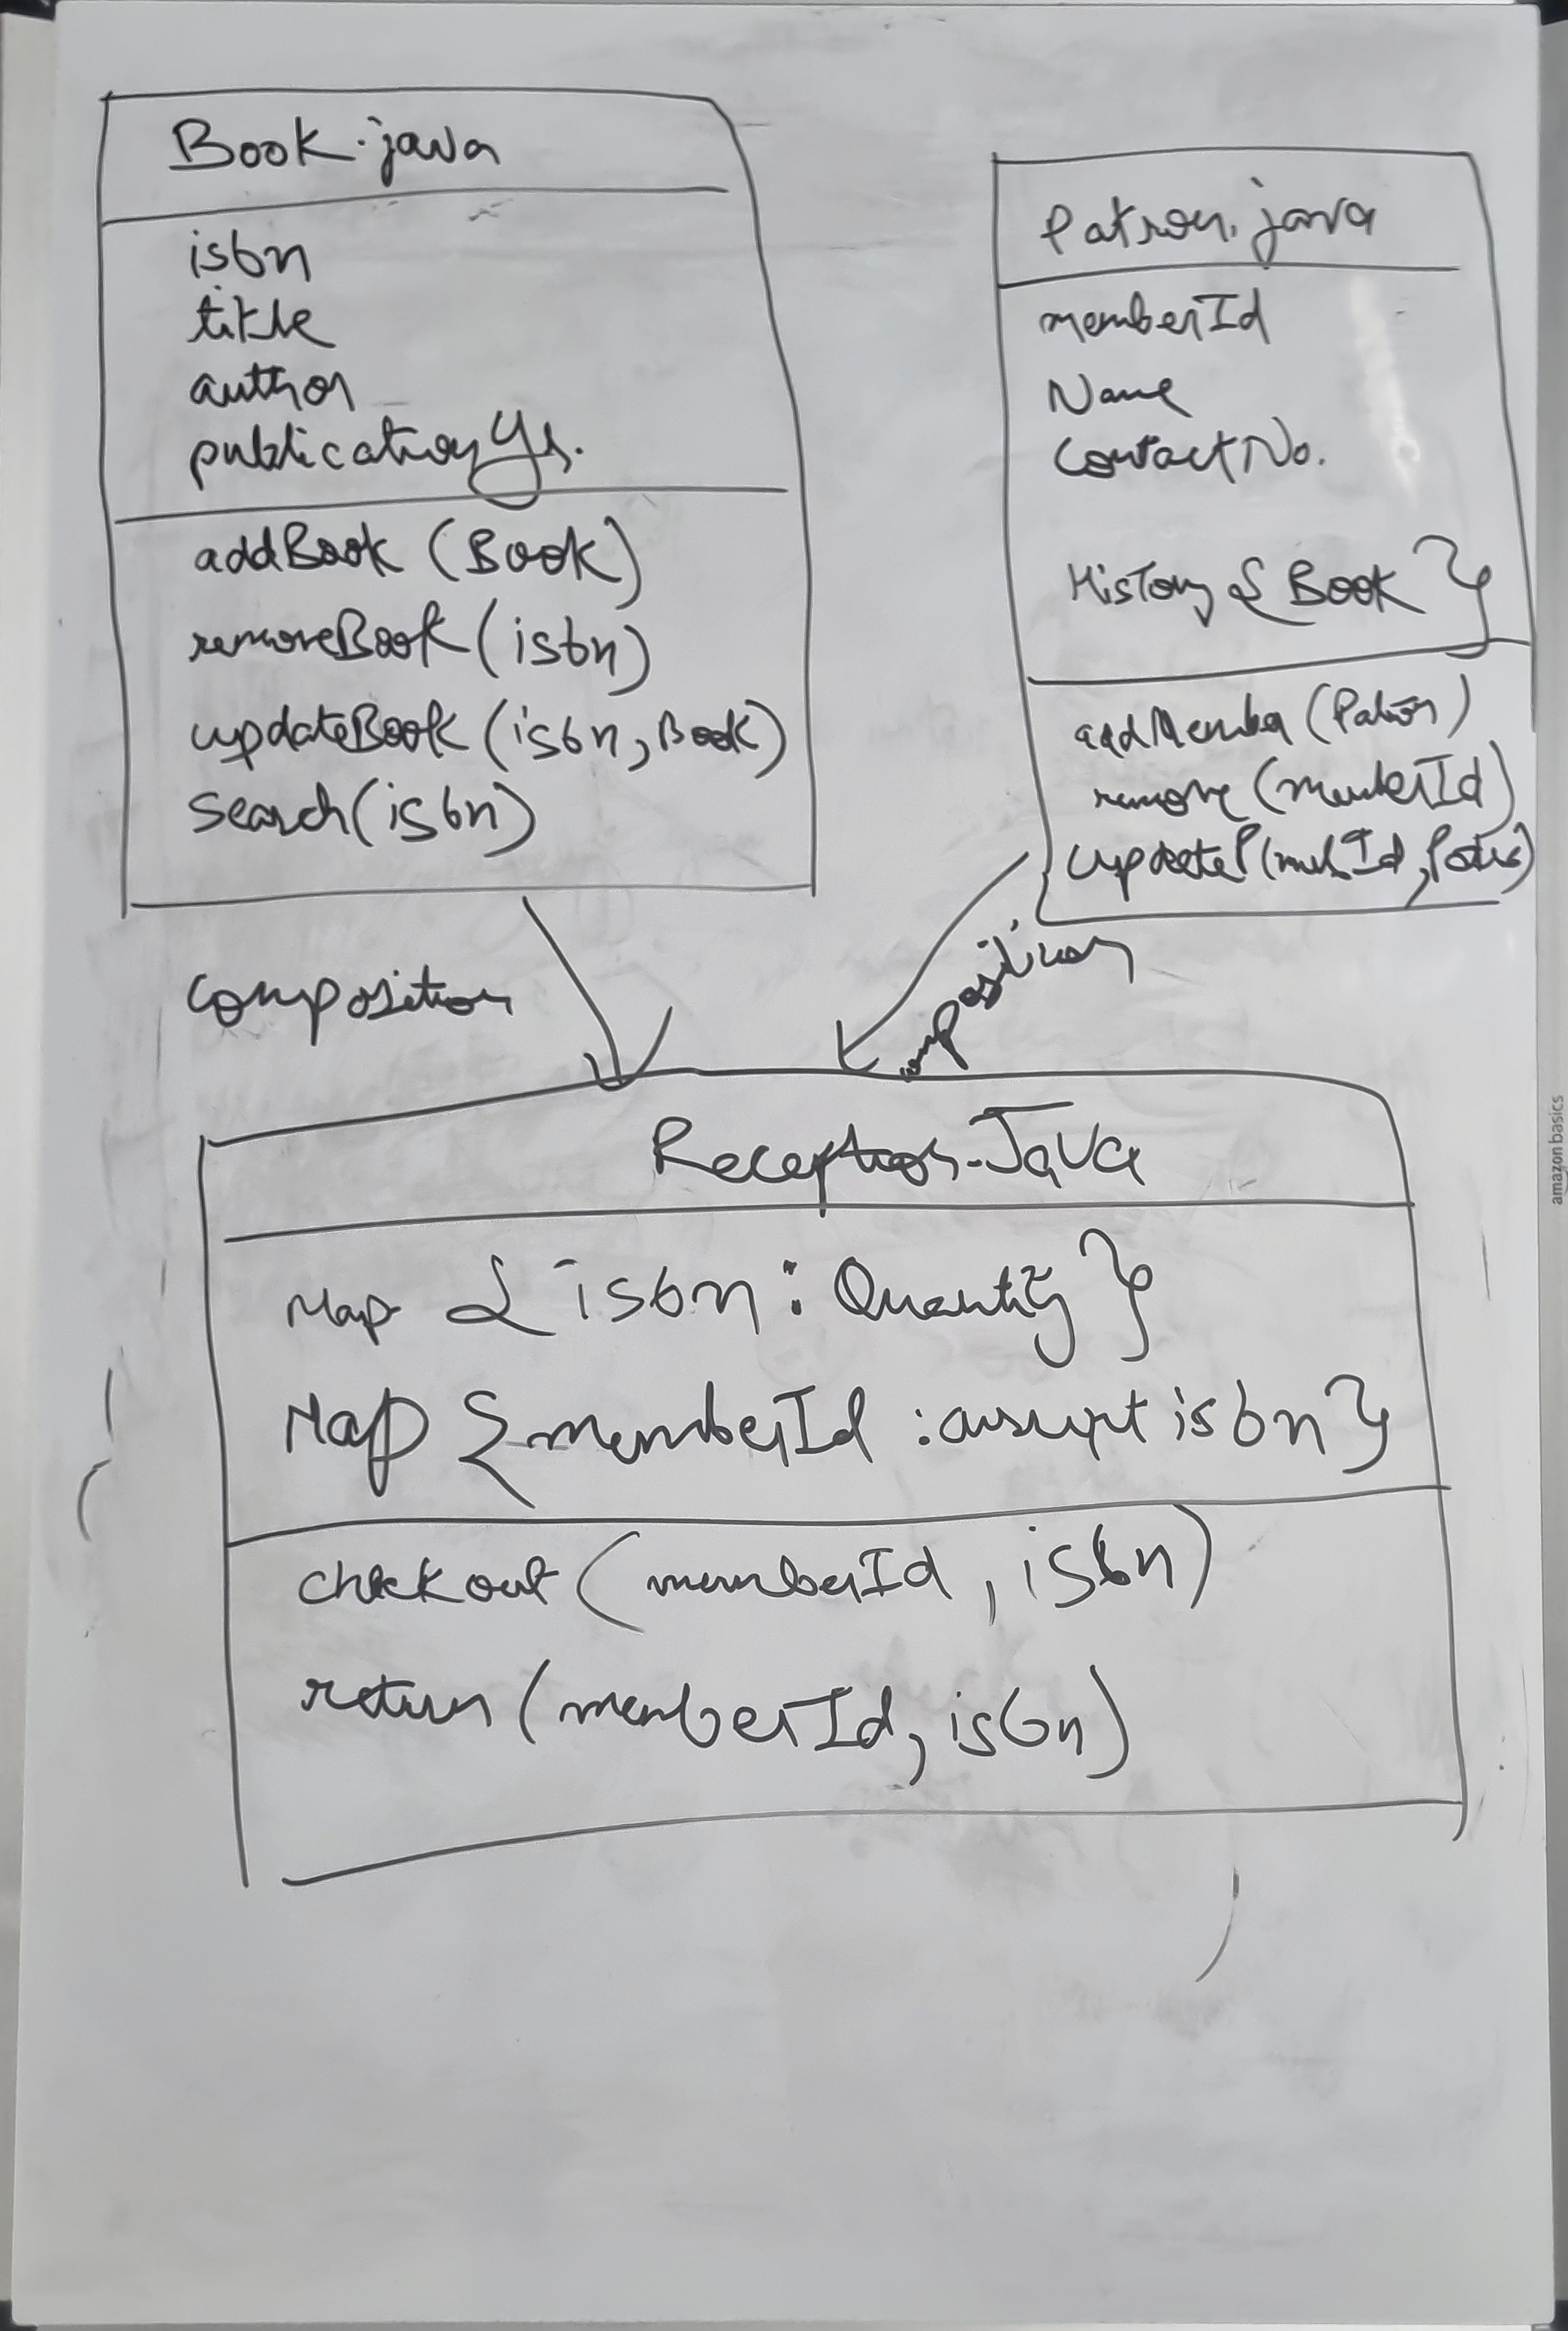 Book.java
isbn
title
author
publicationYr.
addBook (Book)
removeBook (isbn)
updateBook (isbn, Book)
Search (isbn)
Patron.java
memberId
Name
ContactNo.
History { Book }
addMember (Patron)
remove (memberId)
updateP (
composition
composition
Java
Map { isbn : Quantity }
Map { memberId : current isbn }
checkout (memberId, isbn)
return (memberId, isbn)
amazon basics